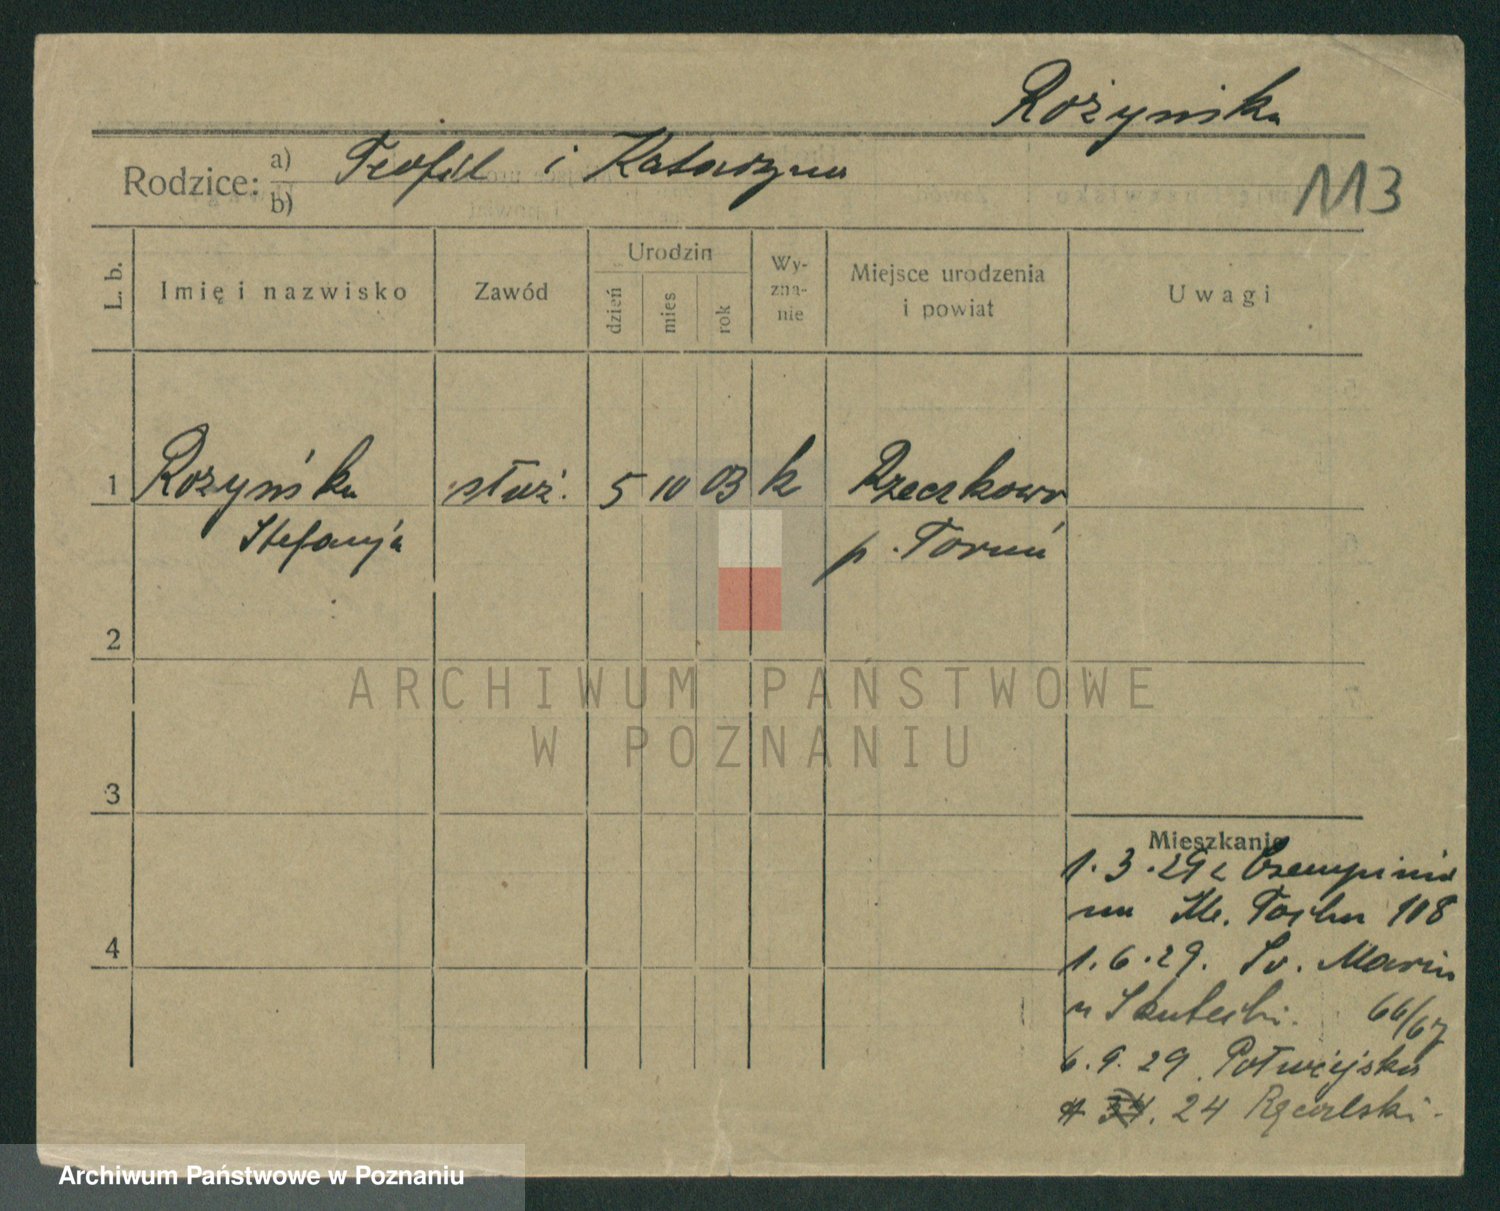 Rożyńska
Rodzice: a) Teofil i Katarzyna
b)
113
L. b. Imię i nazwisko Zawód Urodzin dzień mies rok Wy-zna-nie Miejsce urodzenia i powiat Uwagi
1 Rożyńska służ. 5 10 03 k Rzeczkowo
Stefanja p. Toruń
2
ARCHIWUM PAŃSTWOWE
W POZNANIU
3
Mieszkanie
1.3.29 z Czempinia
108
4
1.6.29. Św. Marcin
66/67
6.9.29. Półwiejska
24
Archiwum Państwowe w Poznaniu